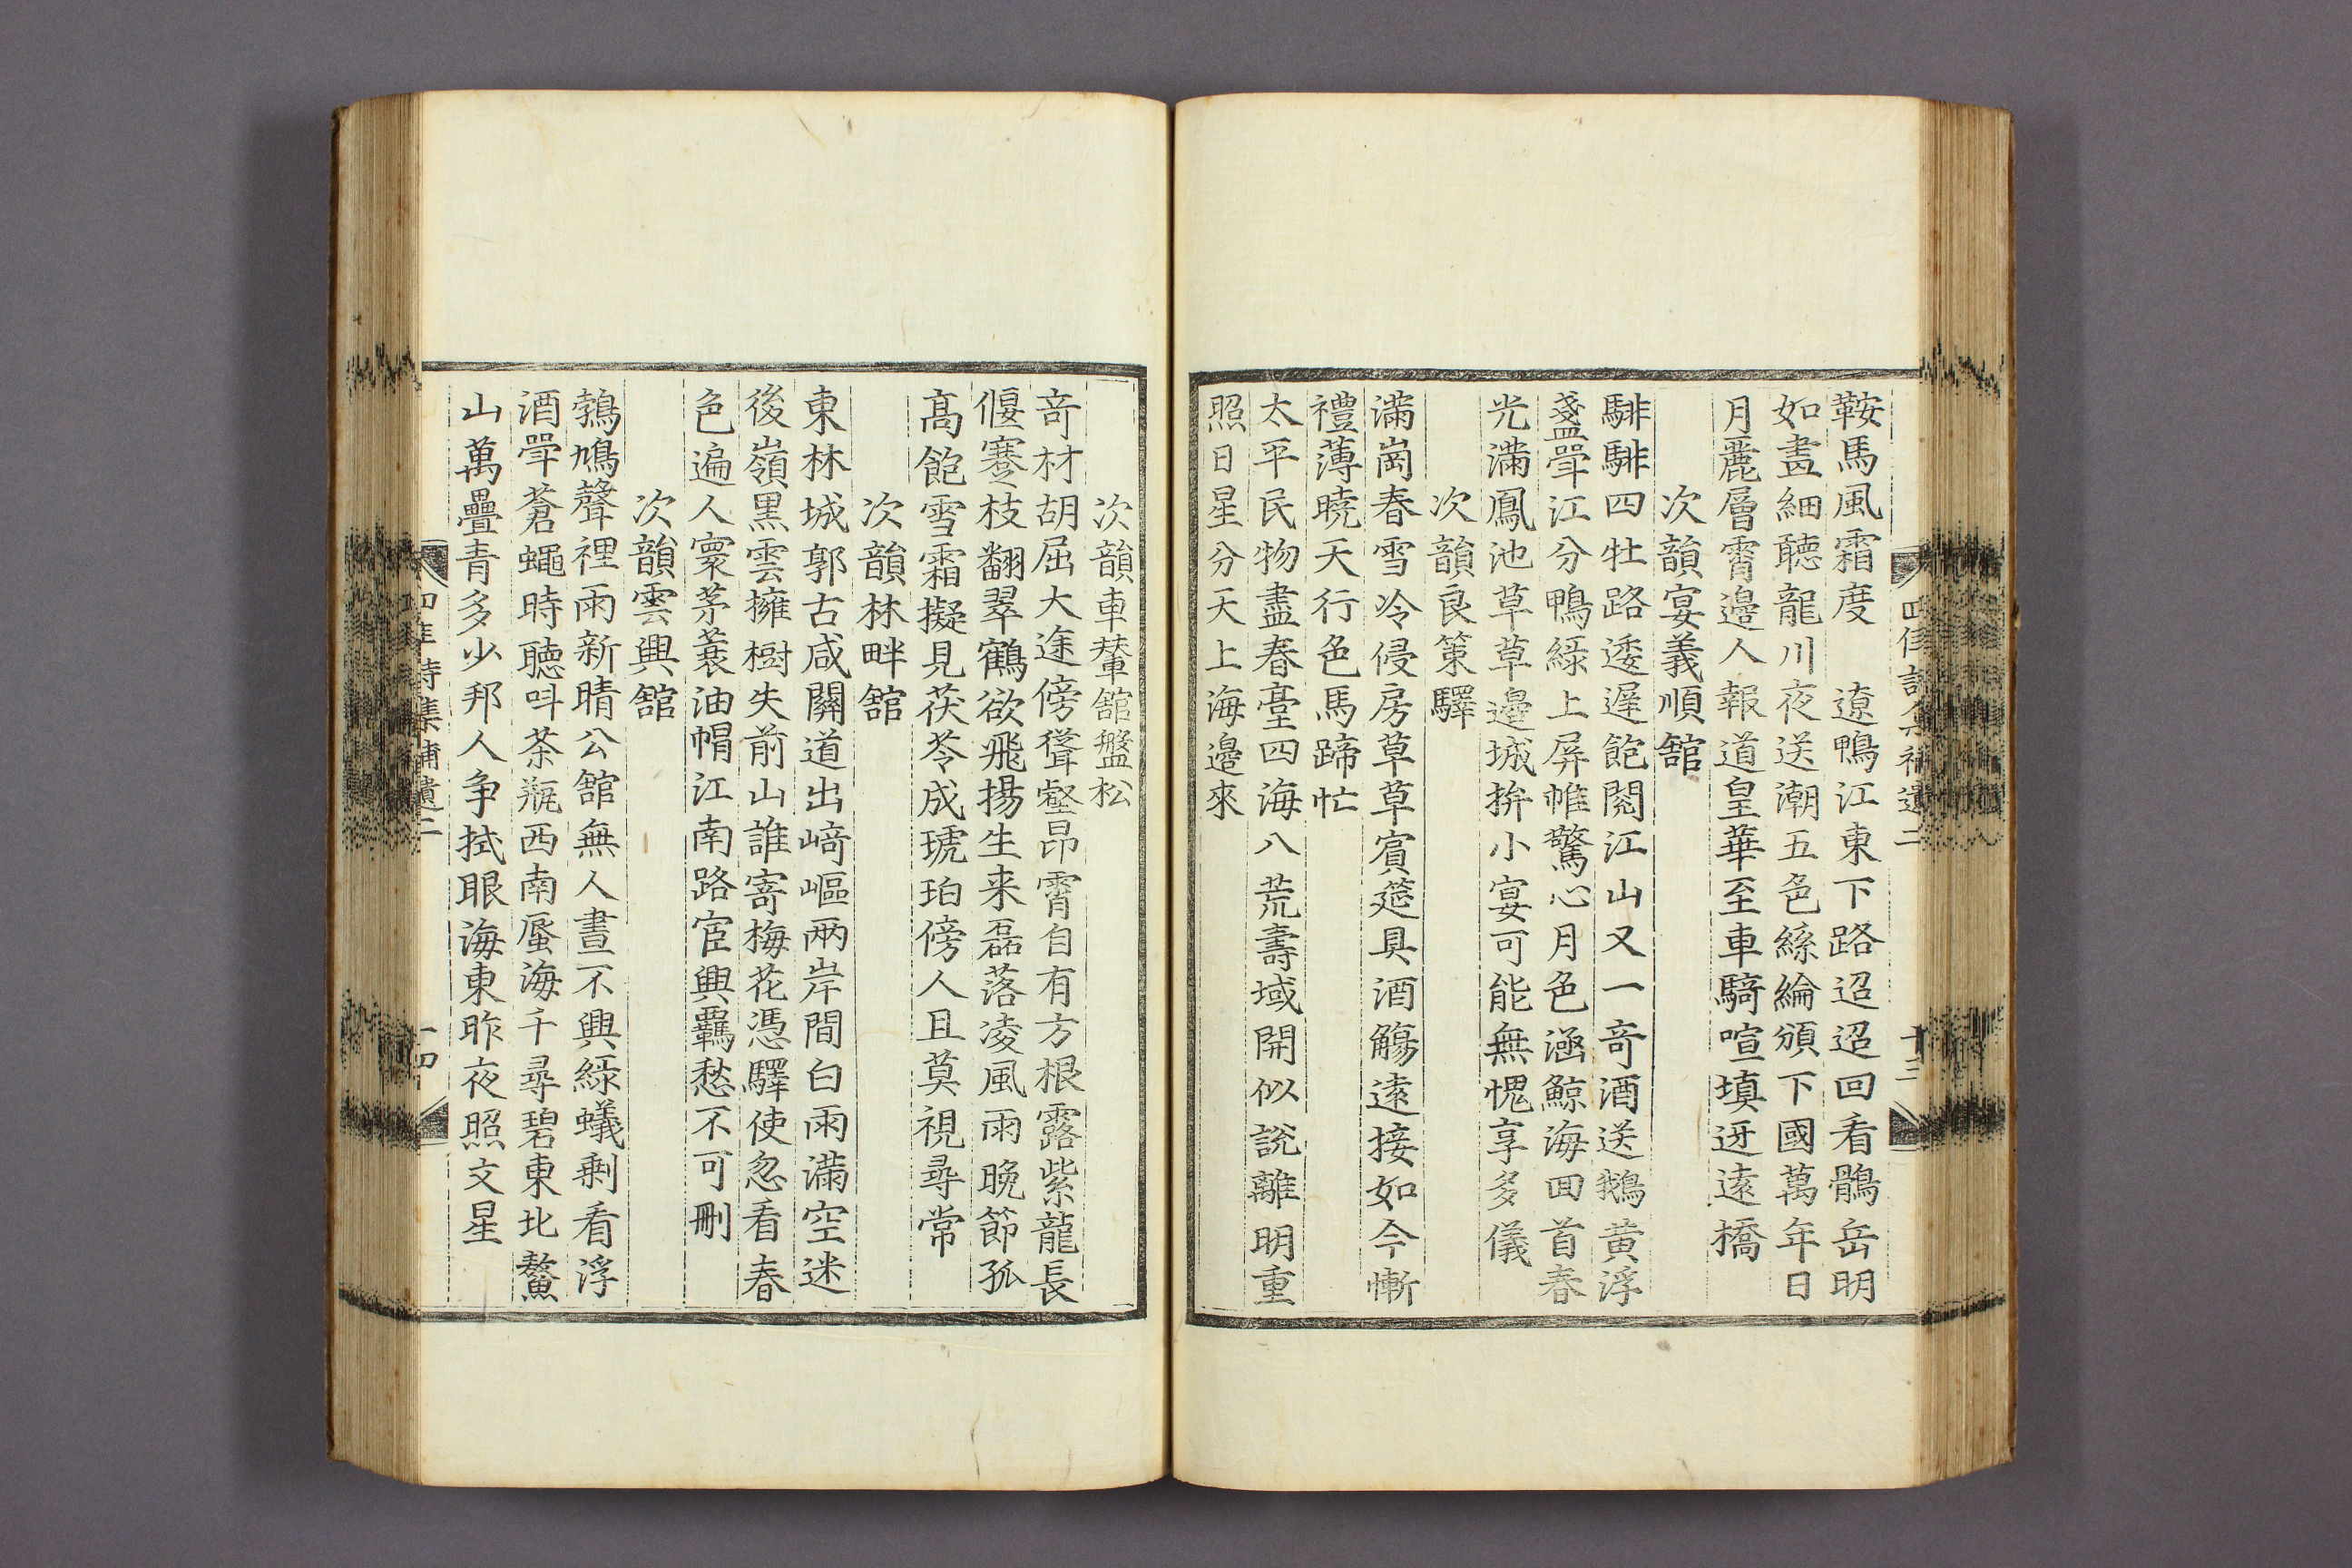 四佳詩集補遺二
十三
鞍馬風霜度　遼鴨江東下路迢迢回看鶻岳明
如畫細聽龍川夜送潮五色絲綸頒下國萬年日
月麗層霄邊人報道皇華至車騎喧塡迓遠橋
次韻宴義順舘
騑騑四牡路逶遲飽閱江山又一竒酒送鵝黄浮
盞斝江分鴨綠上屏帷驚心月色涵鯨海回首春
光滿鳳池草草邉城拚小宴可能無愧享多儀
次韻良策驛
滿崗春雪冷侵房草草賔筵具酒觴逺接如今慚
禮薄曉天行色馬蹄忙
太平民物盡春臺四海八荒壽域開似說離明重
照日星分天上海邊來
次韻車輦舘盤松
竒材胡屈大途傍聳壑昂霄自有方根露紫龍長
偃蹇枝翻翠鶴欲飛揚生来磊落凌風雨晩節孤
高飽雪霜擬見茯苓成琥珀傍人且莫視尋常
次韻林畔舘
東林城郭古咸關道出﨑嶇兩岸間白雨滿空迷
後嶺黒雲擁樹失前山誰寄梅花憑驛使忽看春
色遍人寰茅蓑油帽江南路宦興羈愁不可刪
次韻雲興舘
鵓鳩聲裡雨新晴公舘無人晝不興綠蟻剩看浮
酒斝蒼蠅時聽呌茶瓶西南蜃海千尋碧東北鰲
山萬疊青多少邦人争拭眼海東昨夜照文星
四佳詩集補遺二
十四